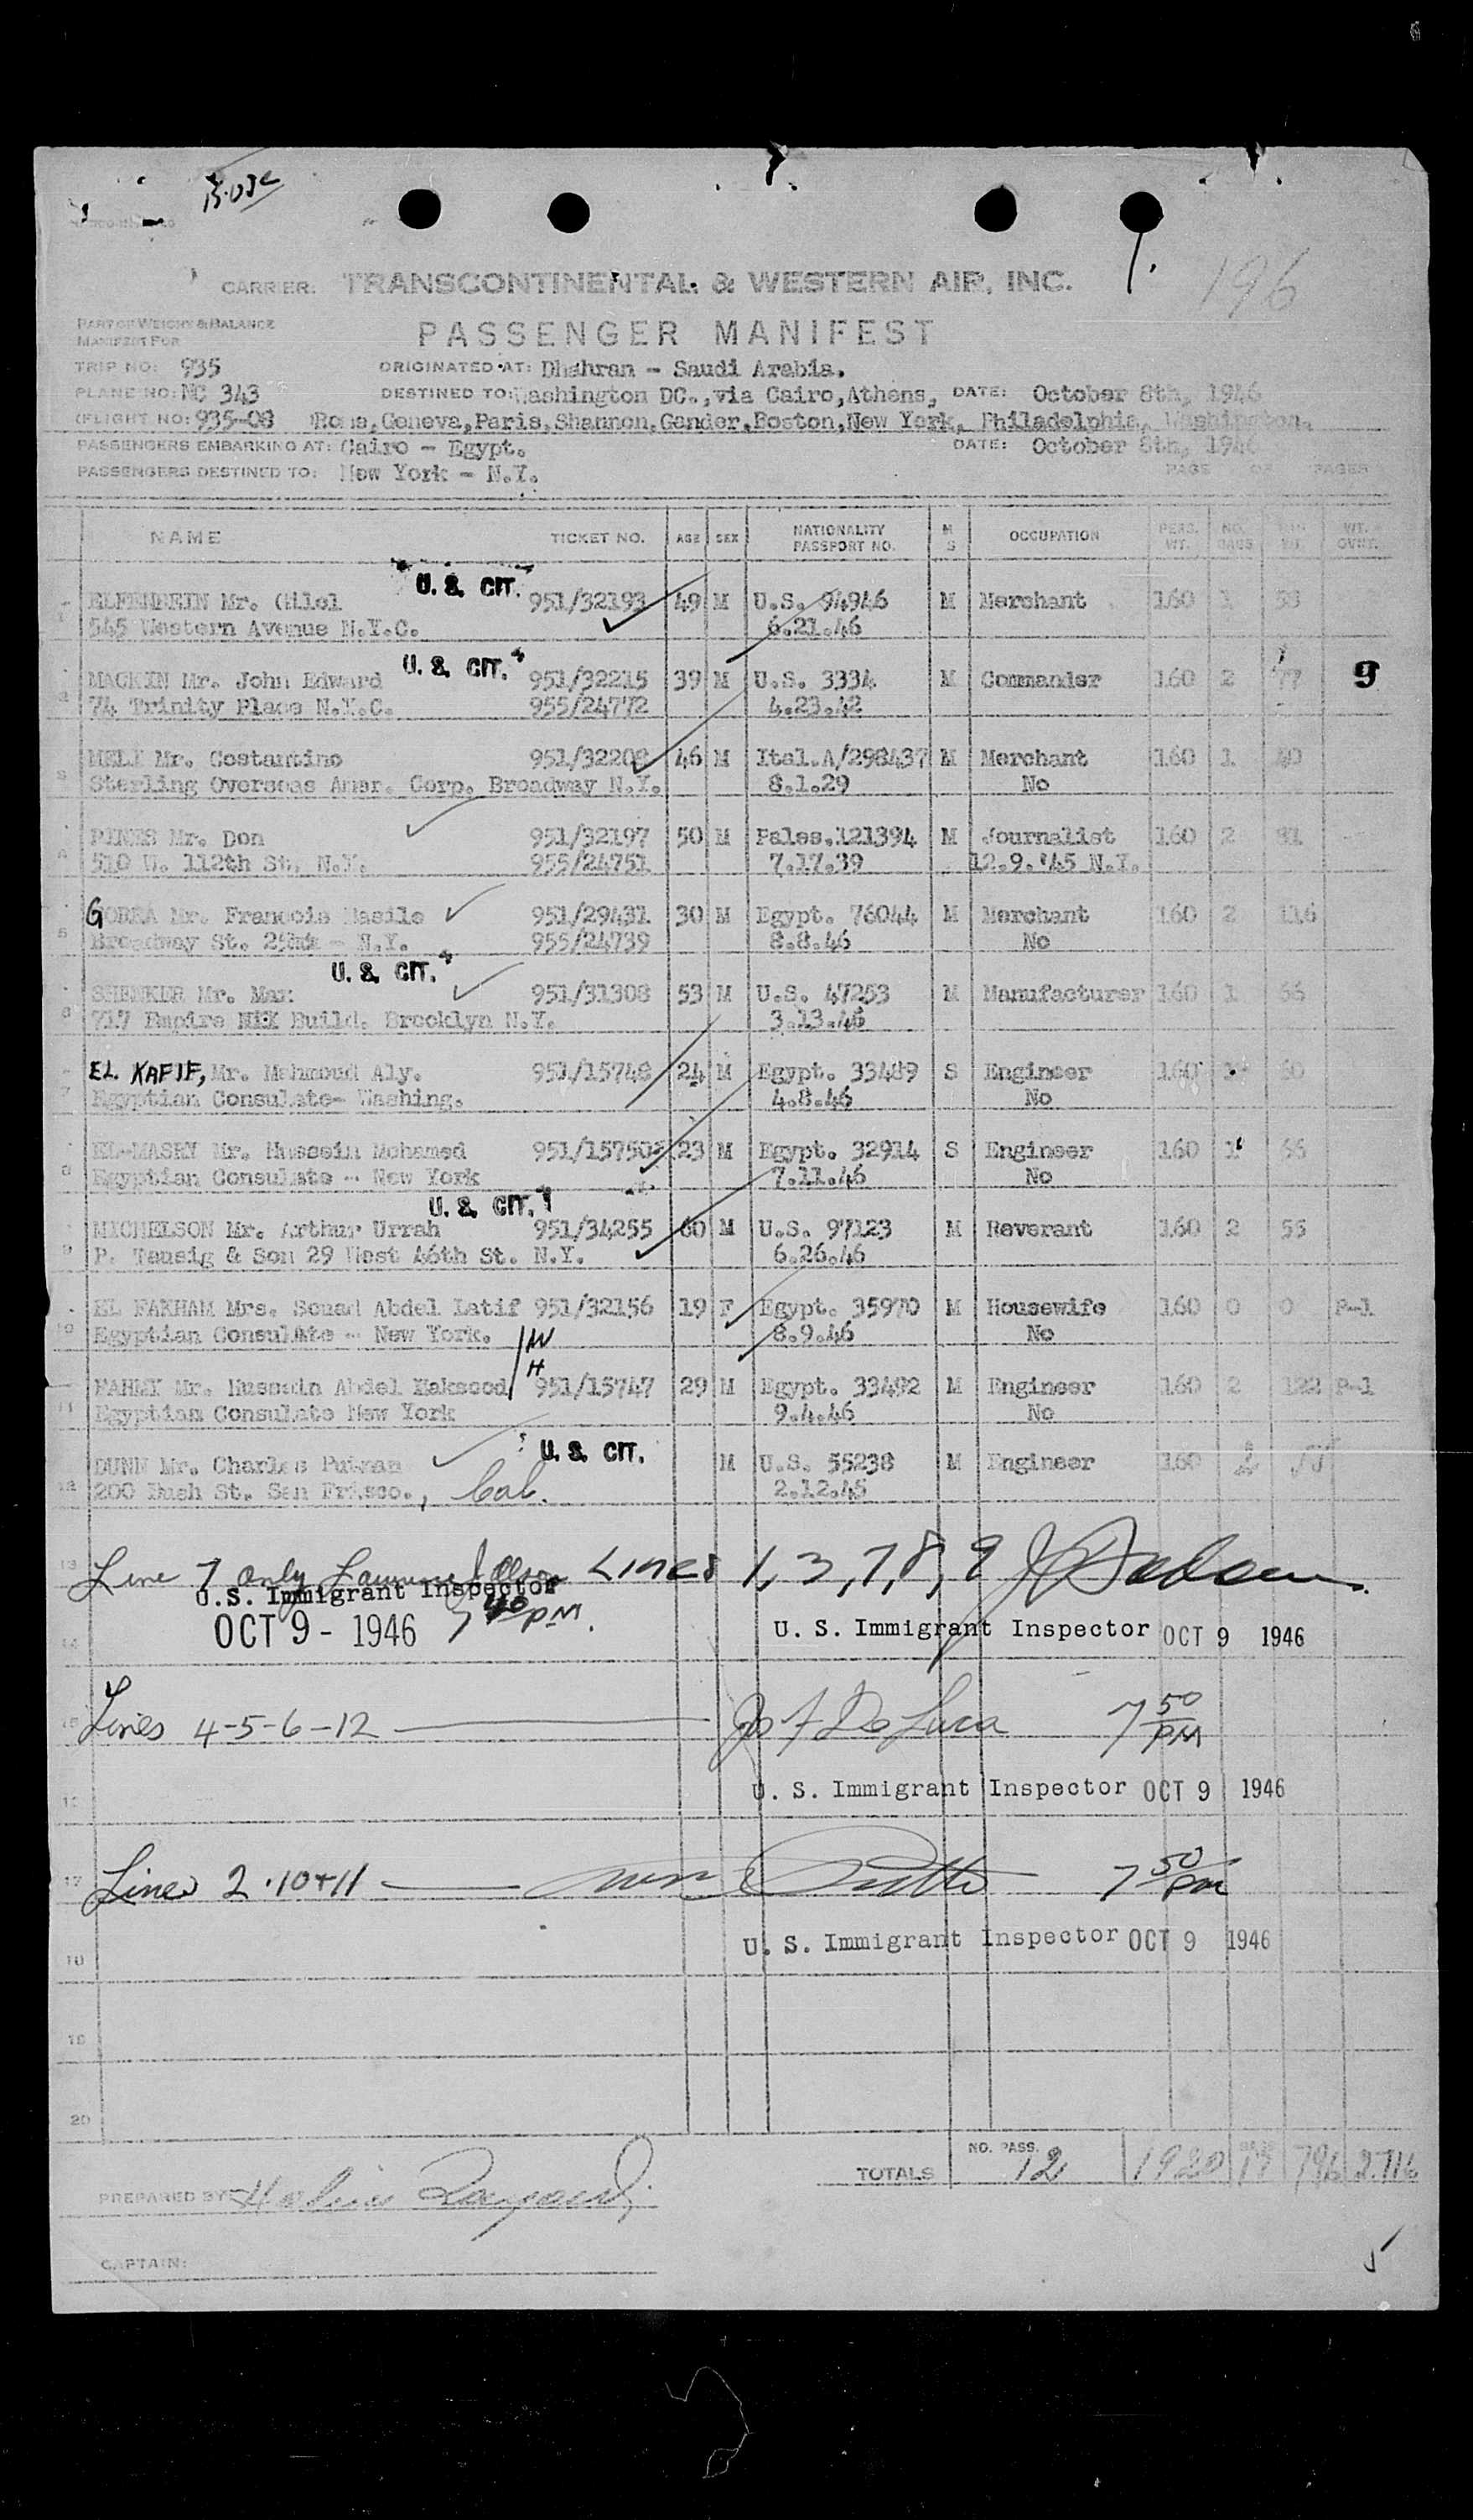 196
CARRIER: TRANSCONTINENTAL & WESTERN AIR, INC.
PART OF WEIGHT & BALANCE
MANIFEST FOR
PASSENGER MANIFEST
TRIP NO: 935 ORIGINATED AT: Dhahran - Saudi Arabia.
PLANE NO: NC 343 DESTINED TO: Washington DC., via Cairo, Athens, DATE: October 8th, 1946
(FLIGHT NO: 935-08 Rome, Geneva, Paris, Shannon, Gander, Boston, New York, Philadelphia, Washington.
PASSENGERS EMBARKING AT: Cairo - Egypt. DATE: October 8th, 1946
PASSENGERS DESTINED TO: New York - N.Y. PAGE OF PAGES
NAME TICKET NO. AGE SEX NATIONALITY PASSPORT NO. M S OCCUPATION PERS. WT. NO. BAGS WT. OVWT.
U. S. CIT.
ELFENBEIN Mr. Hillel 951/32193 49 M U.S. 94946 M Merchant 160 1 58
545 Western Avenue N.Y.C. 6.21.46
U. S. CIT.
MACKIN Mr. John Edward 951/32215 39 M U.S. 3334 M Commander 160 2 77 9
74 Trinity Place N.Y.C. 955/24772 4.23.42
MELE Mr. Costantino 951/32208 46 M Ital.A/298437 M Merchant 160 1 40
Sterling Overseas Amer. Corp. Broadway N.Y. 8.1.29 No
PINES Mr. Don 951/32197 50 M Pales.121394 M Journalist 160 2 81
510 W. 112th St. N.Y. 955/24751 7.17.39 12.9.'45 N.Y.
GORRA Mr. Francois Basile 951/29431 30 M Egypt. 76044 M Merchant 160 2 116
Broadway St. - N.Y. 955/24739 8.8.46 No
U. S. CIT.
SHENKER Mr. Max 951/31308 53 M U.S. 47253 M Manufacturer 160 1 66
717 Empire Build. Brooklyn N.Y. 3.13.46
EL KAFIF, Mr. Mahmoud Aly. 951/15748 24 M Egypt. 33489 S Engineer 160 1 60
Egyptian Consulate- Washing. 4.8.46 No
EL-MASRY Mr. Hussein Mohamed 951/15750 23 M Egypt. 32914 S Engineer 160 1 66
Egyptian Consulate - New York 7.11.46 No
U. S. CIT.
MICHELSON Mr. Arthur Urrah 951/34255 60 M U.S. 97123 M Reverant 160 2 55
P. Tausig & Son 29 West 46th St. N.Y. 6.26.46
EL FAKHAM Mrs. Souad Abdel Latif 951/32156 19 F Egypt. 35970 M Housewife 160 0 0 P-1
Egyptian Consulate - New York. 8.9.46 No
W
H
FAHMY Mr. Hussein Abdel Maksood 951/15747 29 M Egypt. 33492 M Engineer 160 2 122 P-1
Egyptian Consulate New York 9.4.46 No
U. S. CIT.
DUNN Mr. Charles Putnam M U.S. 55238 M Engineer 160 2
200 Bush St. San Frisco., Cal. 2.12.45
Line 7 only Lines 1, 3, 7, 8, 9
U.S. Immigrant Inspector
OCT 9 - 1946 7 40 PM.
U. S. Immigrant Inspector OCT 9 1946
Lines 4-5-6-12 Jos F DeLuca 7 50 PM
U. S. Immigrant Inspector OCT 9 1946
Lines 2.10+11 7 50 PM
U. S. Immigrant Inspector OCT 9 1946
19
20
TOTALS NO. PASS. 12 1920 17 796 2716
PREPARED BY
CAPTAIN: